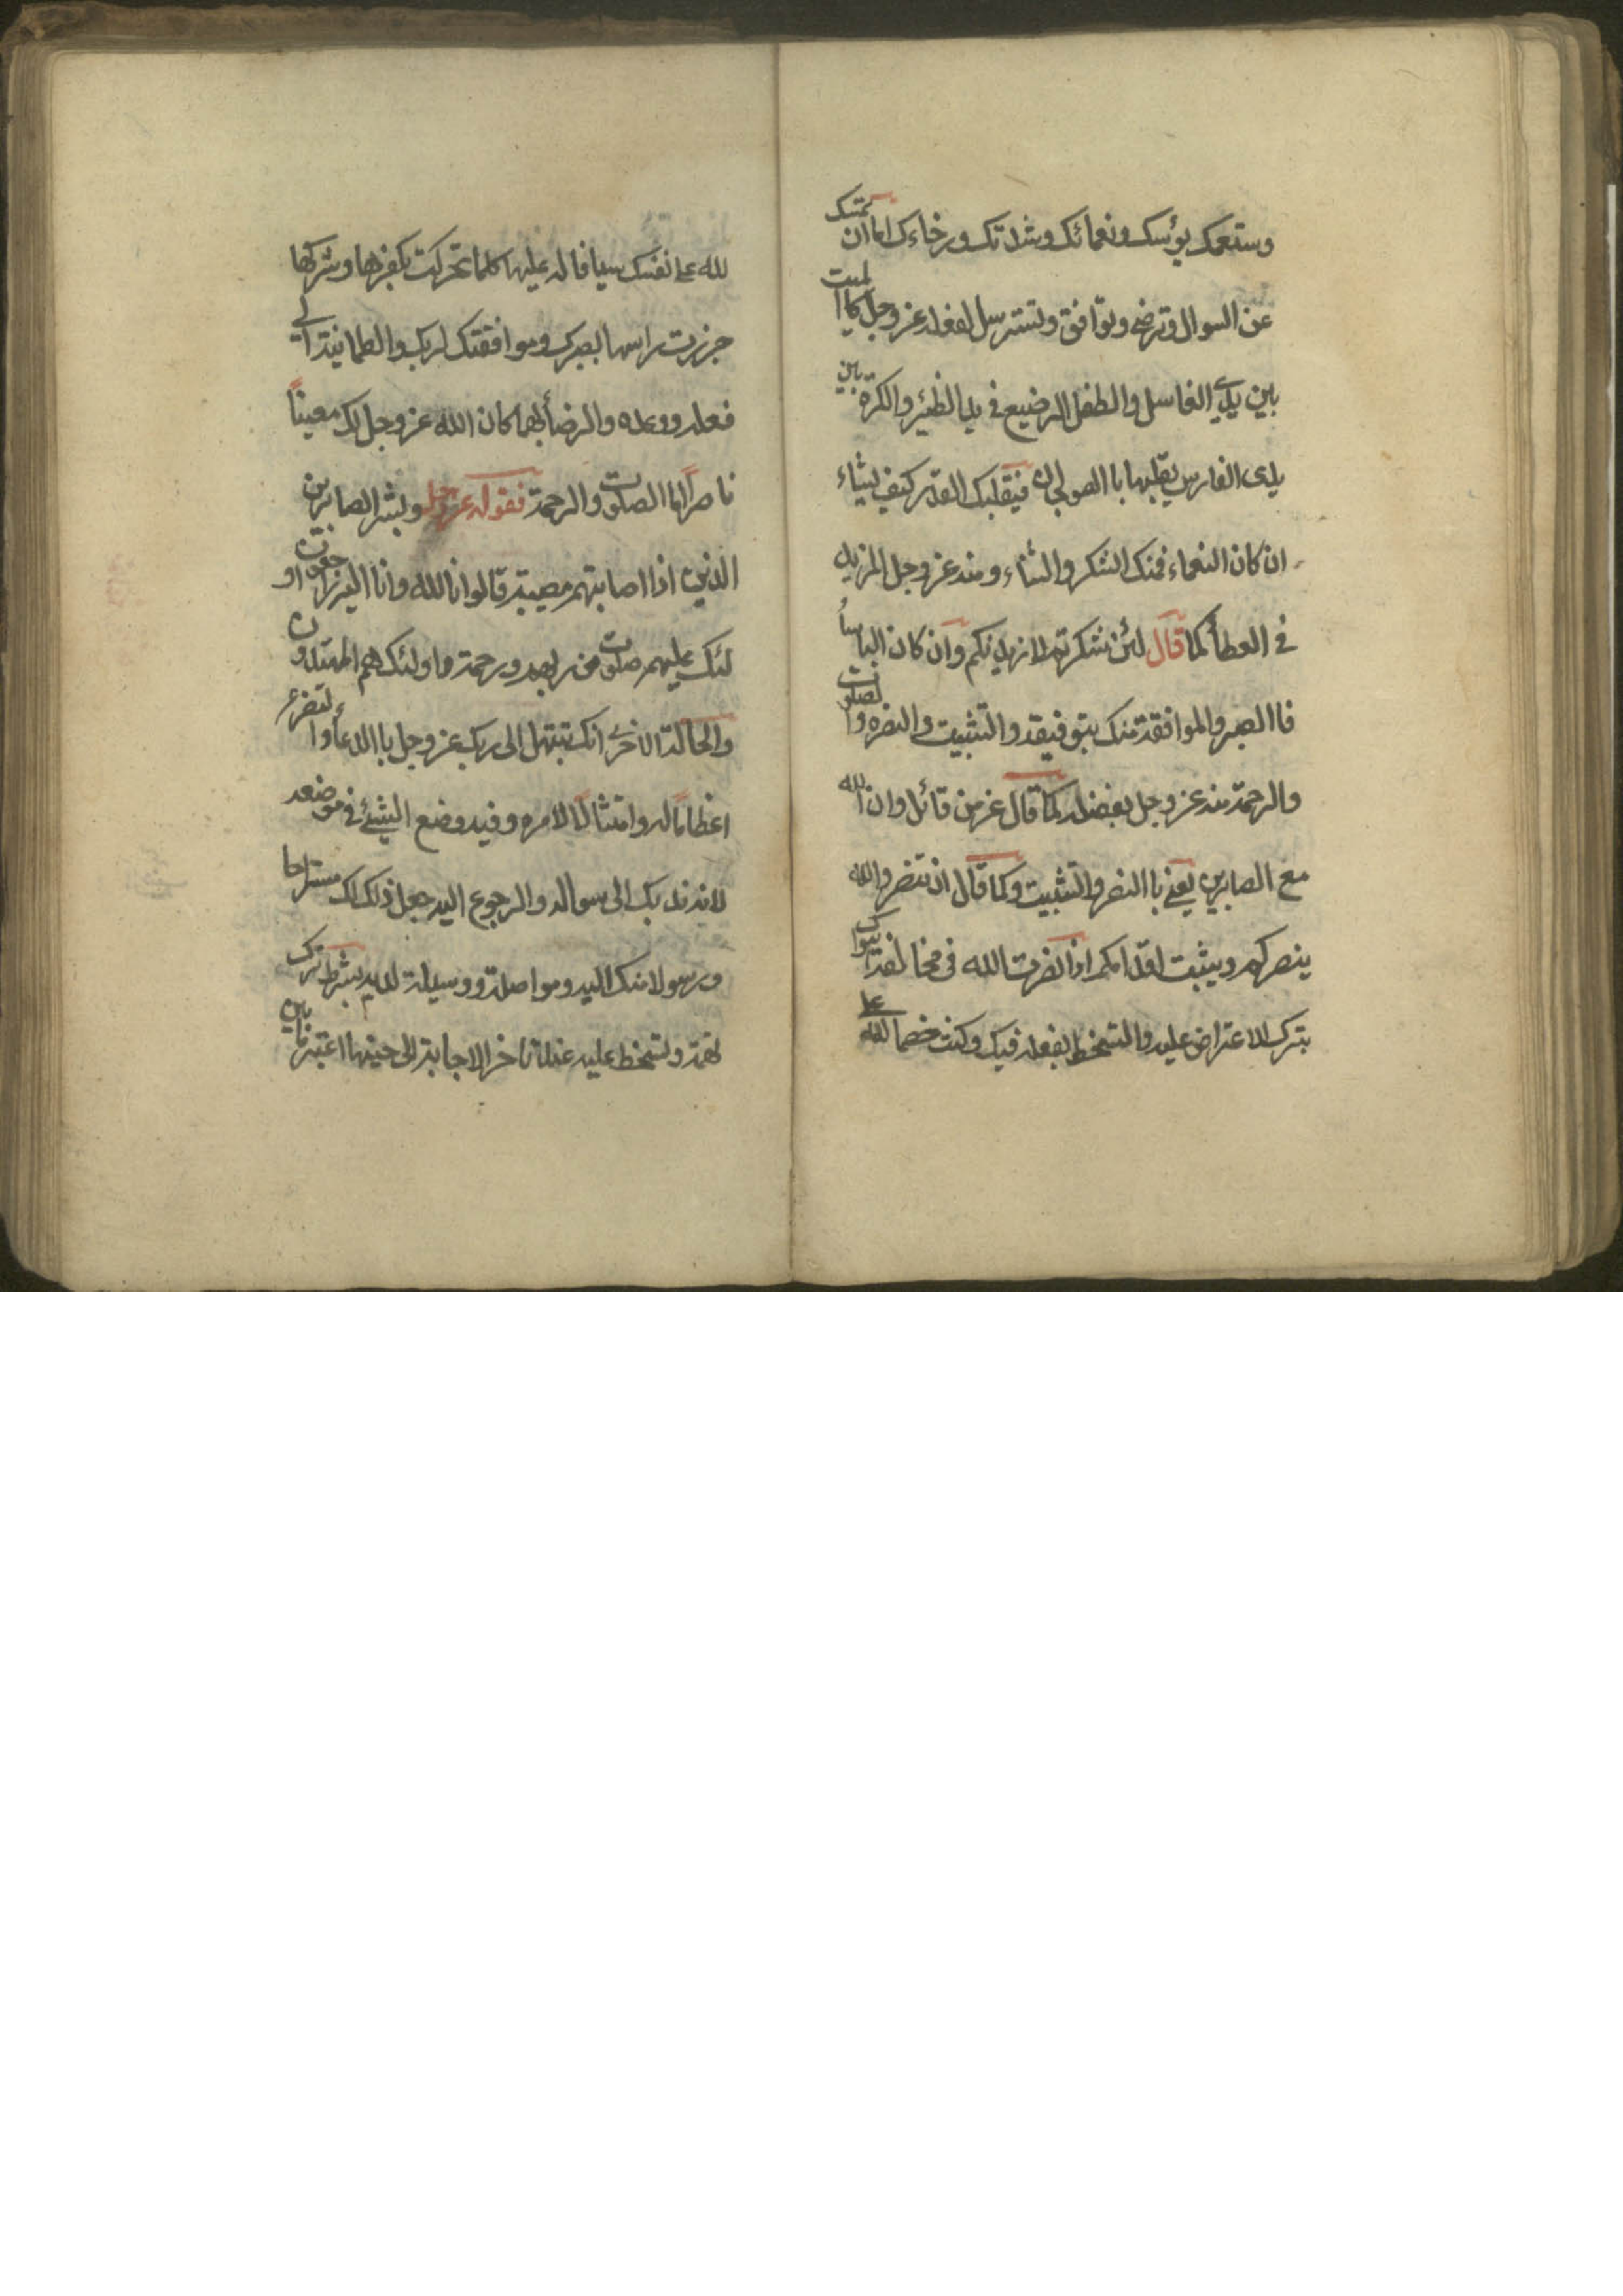 وستعمك بؤسك ونعمائك وشدتك ورخاءك اما ان تمسك
عن السوال وترضى وتوافق وتسترسل لفعله عز وجل كاالميت
بين يدي الغاسل والطفل الرضيع في يدا الظئير والكرة بين
يدى الفارس يقلبها باالصولجان فيقلبك القدر كيف يشاء
ان كان النعماء فمنك الشكر والثناء ومنه عز وجل المزيد
في العطأ كما قال لئن شكرتم لازيدنكم وان كان الباسأ
فاالصبر والموافقة منك بتوفيقه والتثبيت والنصره والصلوت
والرحمة منه عز وجل بفضله كما قال عز من قائل وان الله
مع الصابرين يعني باالنصر والتثبيت وكما قال ان تنصروا الله
ينصركم ويثبت اقدامكم اذا نصرت الله في مخالفة هواك
بترك الاعتراض عليه والتسخط بفعله فيك وكنت خصما لله على
لله على نفسك سيافا له عليها كلما تحركت بكفرها وشركها
جززت راسها بصبرك وموافقتك لربك والطمانينة الى
فعله ووعده والرضأ بهما كان الله عز وجل لك معيناً
ناصراً اما الصلوت والرحمة فقوله عز وجل وبشر الصابرين
الذين اذا اصابتهم مصيبة قالوا انا لله وانا اليه راجعون او
لئك عليهم صلوت من ربهم ورحمة واولئك هم المهتدون
والحالة الاخرى انك تبتهل الى ربك عز وجل باالدعأ والتضرع
اعظاماً له وامتثالاً لامره وفيه وضع الشيئ في موضعه
لانه ندبك الى سواله والرجوع اليه جعل ذلك لك مستراحا
ورسولا منك اليه ومواصلة ووسيلة لديه بشرط ترك
تهمة وتسخط عليه عند تاخر الاجابة الى حينها اعتبر ما بين